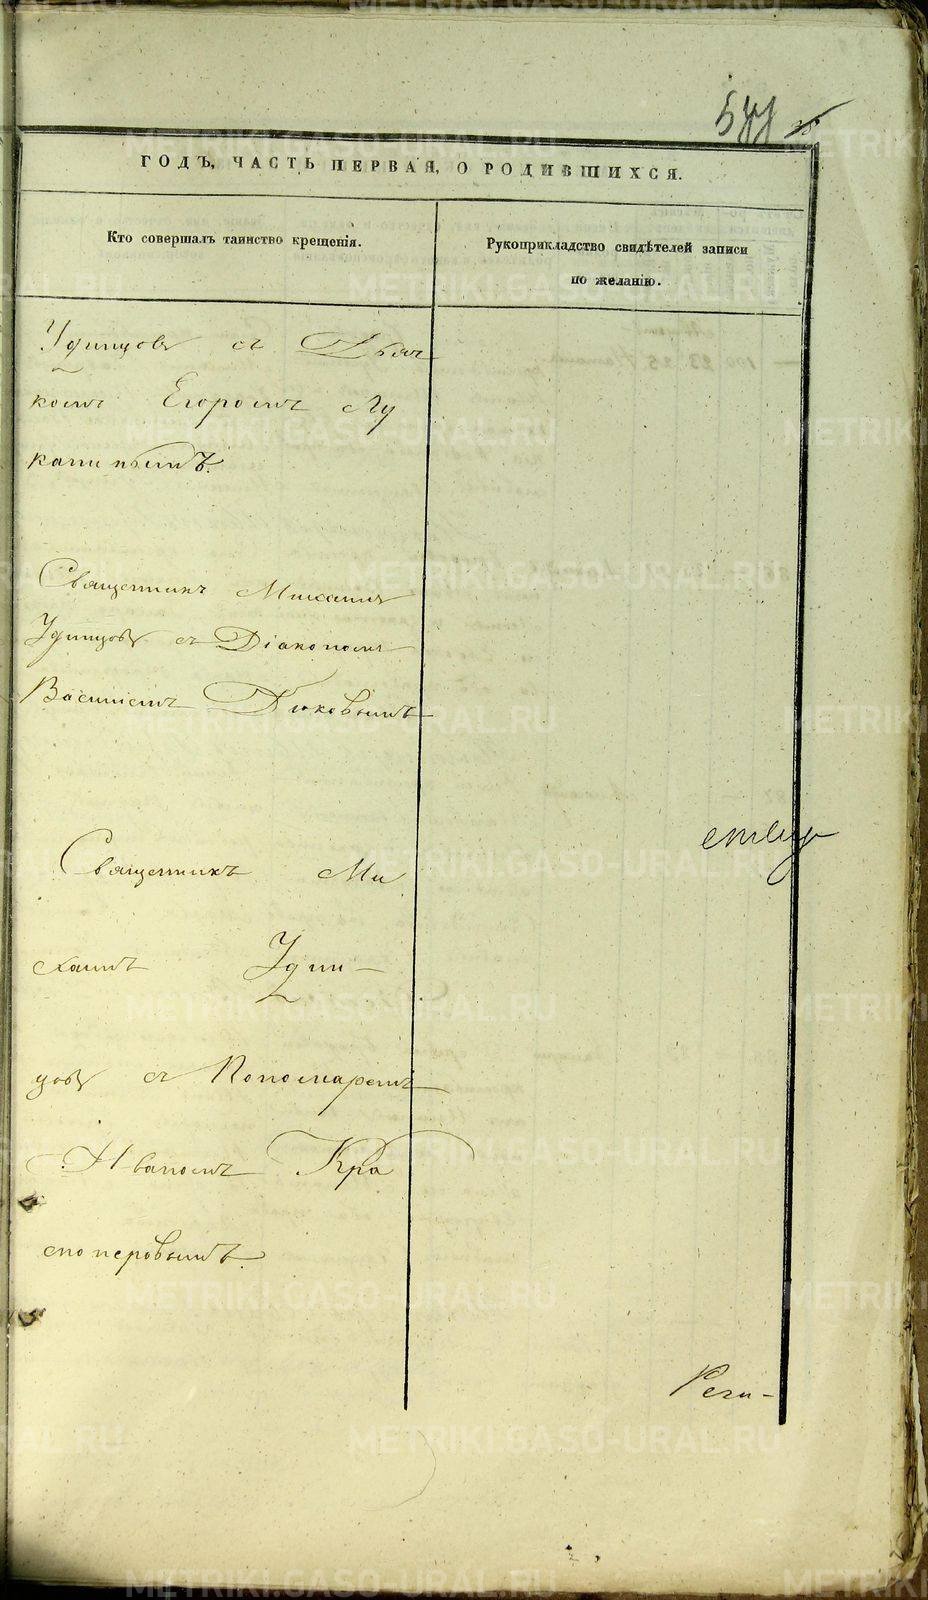 ГОДЪ, ЧАСТЬ ПЕРВАЯ, О РОДИВШИХСЯ.
Кто совершалъ таинство крещенія.
Рукоприкладство свидѣтелей записи
по желанію.
Удинцовъ съ Дьяч
комъ Егоромъ Лу
канинымъ.
Священникъ Михаилъ
Удинцовъ съ Діакономъ
Василіемъ
Священникъ Ми
хаилъ Удин-
цовъ съ Пономаремъ
Иваномъ Кра
сноперовымъ.
METRIKI.GASO-URAL.RU